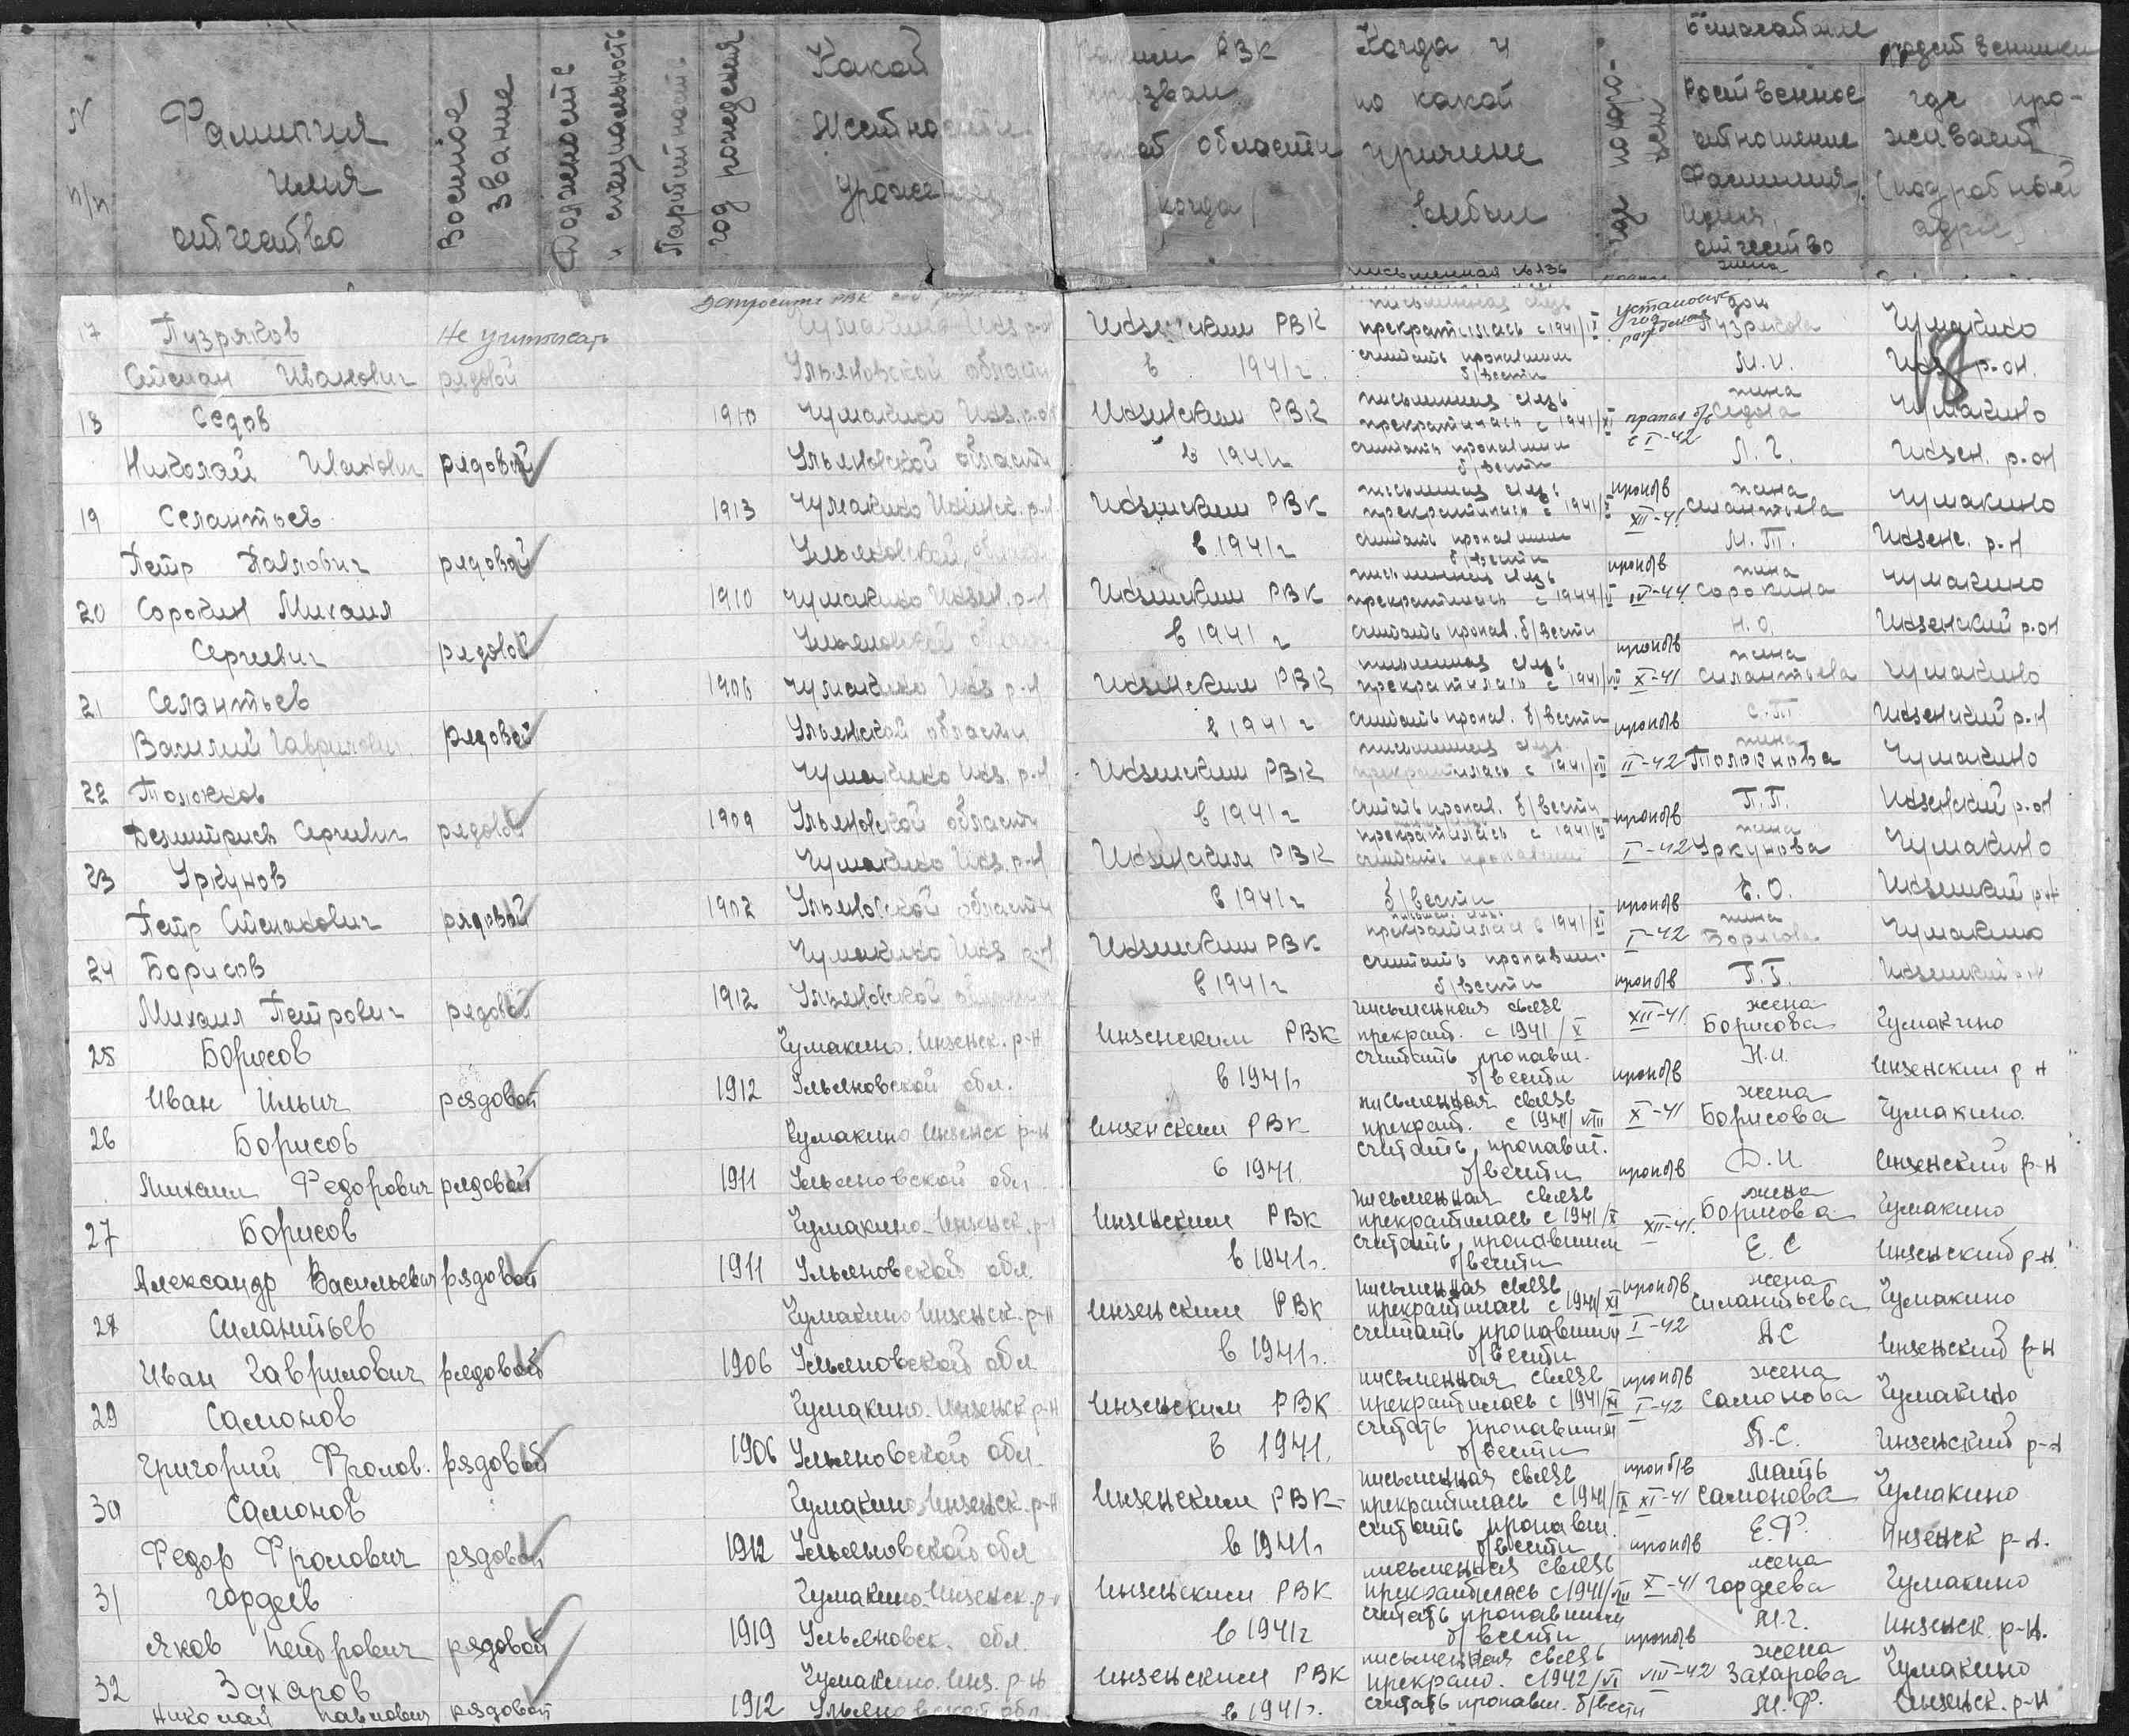 N п/п
Фамилия имя отчество
Военное звание
Должность и специальность
Партийность
год рождения
Какой местности
РВК
области
/когда/
Когда и по какой причине выбыл
где похоро-нен
Родственное отношение Фамилия, имя, отчество
где про-живает (подробный адрес)
17 Пузряков Инзенским РВК прекратилась с 1941/IX Пузрякова Чумакино
Не учитывать
Степан Иванович рядовой Ульяновской области в 1941 г. считать пропавшим б/вести М.И. Инз. р-он.
18
жена
18 Седов 1910 Чумакино Инз. р-он Инзенским РВК письменная связь прекратилась с 1941/XI пропал б/в с I-42 Седова Чумакино
Николай Иванович рядовой Ульяновской области в 1941г считать пропавшим б/вести Л.Г. Инзен. р-он
жена
19 Селантьев 1913 Чумакино Инзенск. р-н Инзенским РВК письменная связь прекратилась с 1941/X проп б/в XII-41 Силантьева Чумакино
Петр Павлович рядовой Ульяновской в 1941г считать пропавшим б/вести М.П. Инзенс. р-н
жена
20 Сорокин Михаил 1910 Чумакино Инзен. р-н Инзенским РВК письменная связь прекратилась с 1944/II проп б/в IV-44 Сорокина Чумакино
Сергеевич рядовой Ульяновской в 1941 г считать пропав. б/вести Н.О. Инзенский р-он
жена
21 Селантьев 1906 Чумакино Инз р-н Инзенским РВК письменная связь прекратилась с 1941/VIII проп б/в X-41 Силантьева Чумакино
Василий Гаврилович рядовой Ульянской области в 1941 г считать пропав. б/вести С.П Инзенский р-н
жена
22 Толокнов Чумакино Инз. р-н Инзенским РВК письменная связь прекратилась с 1941/XII проп б/в II-42 Толокнова Чумакино
Дезмитриев Сергеевич рядовой 1909 Ульяновской области в 1941г считать пропав. б/вести П.П. Инзенский р-он
жена
23 Уркунов Чумакино Инз. р-н Инзенским РВК прекратилась с 1941/XI считать пропавшим проп б/в I-42 Уркунова Чумакино
Петр Степанович рядовой 1902 Ульяновской области в 1941г б/вести Е.О. Инзенский р-н
жена
24 Борисов Чумакино Инз р-н Инзенским РВК прекратилась с 1941/XI проп б/в I-42 Борисова Чумакино
Михаил Петрович рядовой 1912 Ульяновской в 1941г считать пропавшим б/вести П.Г. Инзенский р-н
жена
25 Борисов Чумакино. Инзенск. р-н Инзенским РВК письменная связь прекрат. с 1941/X проп б/в XII-41 Борисова Чумакино
Иван Ильич рядовой 1912 Ульяновской обл. в 1941г. считать пропавш. б/вести Н.И. Инзенский р н
жена
26 Борисов Чумакино Инзенск р-н Инзенским РВК письменная связь прекрат. с 1941/VIII проп б/в X-41 Борисова Чумакино.
Михаил Федорович рядовой 1911 Ульяновской обл в 1941. считать пропавш. б/вести Д.И Инзенский р-н
жена
27 Борисов Чумакино-Инзенск. р-н Инзенским РВК письменная связь прекратилась с 1941/X проп б/в XII-41. Борисова Чумакино
Александр Васильевич рядовой 1911 Ульяновской обл. в 1941г. считать пропавшим б/вести Е.С Инзенский р-н.
жена
28 Силантьев Чумакино Инзенск. р-н Инзенским РВК письменная связь прекратилась с 1941/XI проп б/в I-42 Силантьева Чумакино
Иван Гаврилович рядовой 1906 Ульяновской обл в 1941г. считать пропавшим б/вести А С Инзенский р-н
жена
29 Самонов Чумакино. Инзенск р-н Инзенским РВК письменная связь прекратилась с 1941/XI проп б/в I-42 Самонова Чумакино
Григорий Фролов. рядовой 1906 Ульяновской обл. в 1941. считать пропавшим б/вести А.С. Инзенский р-н
мать
30 Самонов Чумакино Инзенск. р-н Инзенским РВК письменная связь прекратилась с 1941/IX проп б/в XI-41 Самонова Чумакино
Федор Фролович рядовой 1912 Ульяновской обл в 1941г считать пропавш. б/вести Е.Ф. Инзенск р-н.
жена
31 Гордеев Чумакино-Инзенск. р-н Инзенским РВК письменная связь прекратилась с 1941/VIII проп б/в X-41 Гордеева Чумакино
Яков Петрович рядовой 1919 Ульяновск. обл. в 1941г считать пропавшим б/вести М.Г. Инзенск. р-н.
жена
32 Захаров Чумакино. Инз. р-н Инзенским РВК письменная связь прекрат. с 1942/VI проп б/в VIII-42 Захарова Чумакино
Николай Павлович рядовой 1912 Ульяновской обл. в 1941г. считать пропавш. б/вести М.Ф. Инзенск. р-н